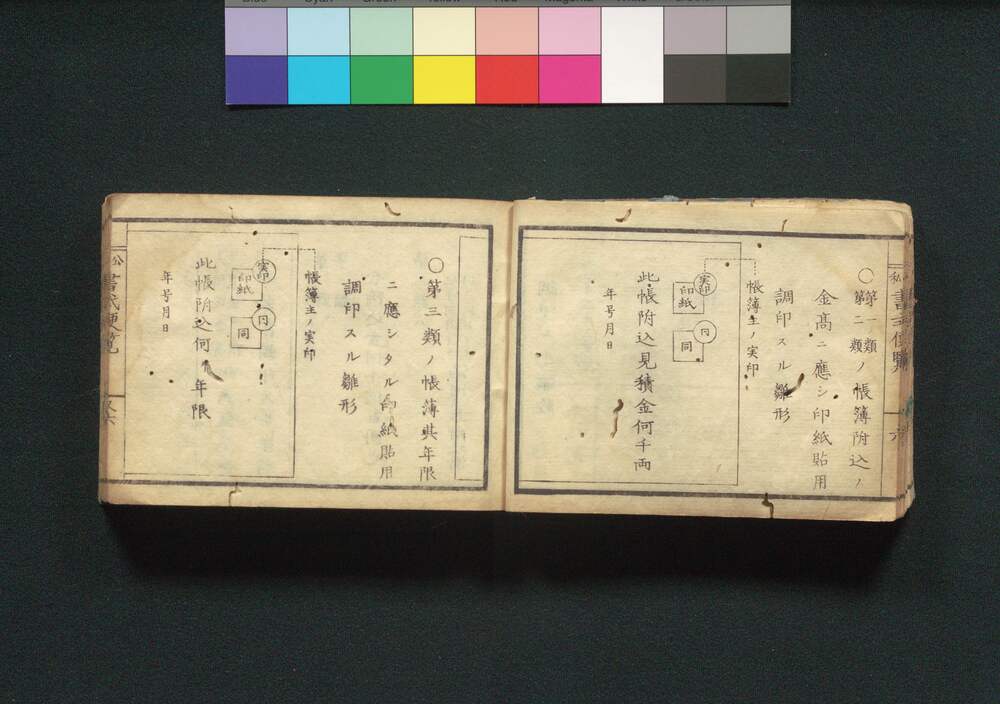 ○第一類
第二類ノ帳簿附込ノ
金高ニ應シ印紙貼用
調印スル雛形
帳簿主ノ実印
実印
印紙
印
同
此帳附込見積金何千両
年号月日
○第三類ノ帳簿其年限
ニ應シタル印紙貼用
調印スル雛形
帳簿主ノ実印
実印
印紙
同
此帳附込何ヶ年限
年号月日